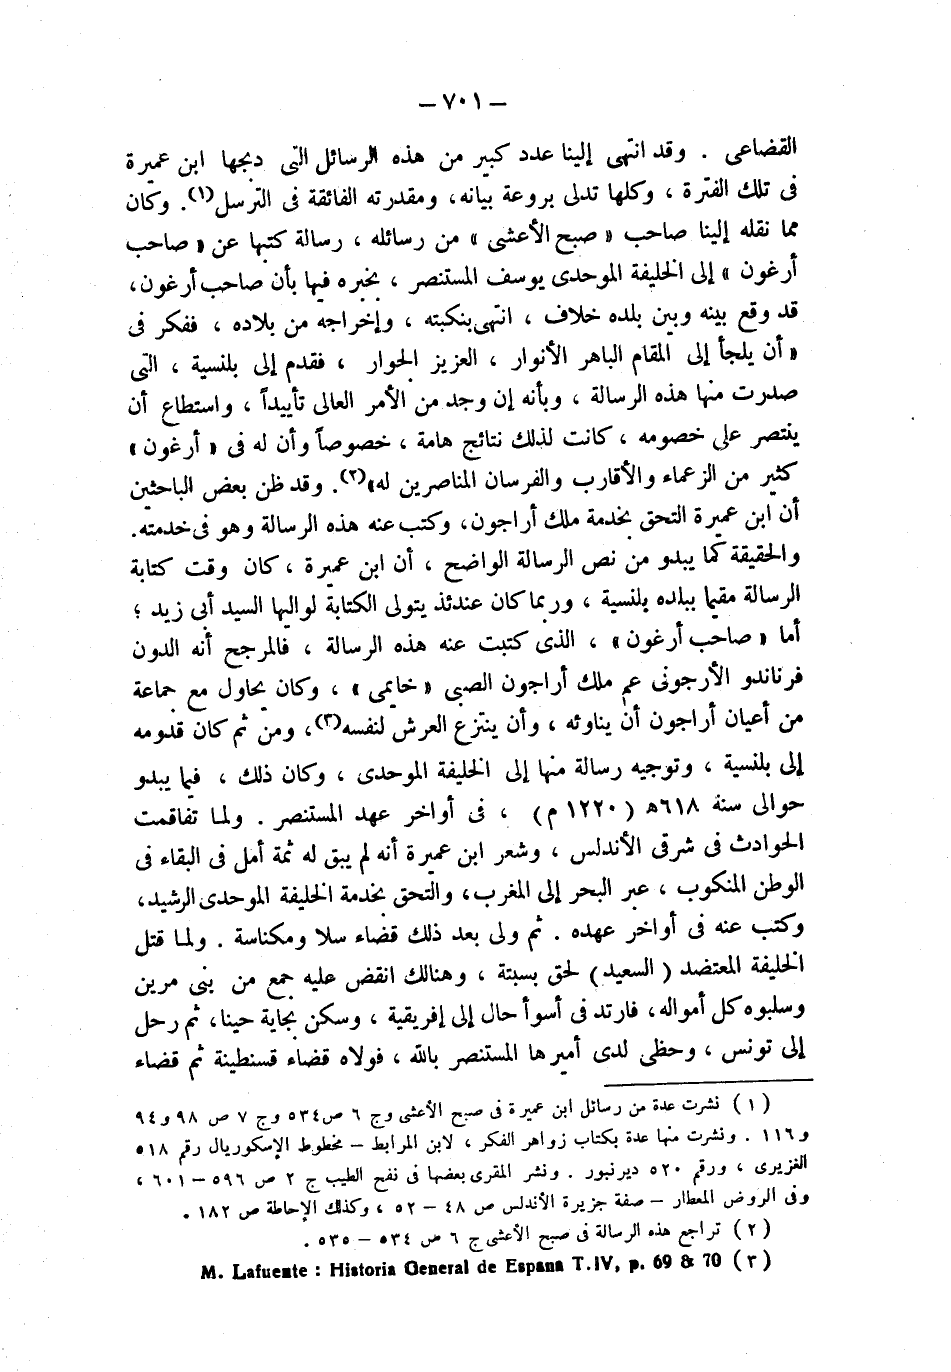 — ٧٠١ —
القضاعى . وقد انتهى إلينا عدد كبير من هذه الرسائل التى دبجها ابن عميرة
فى تلك الفترة ، وكلها تدلى بروعة بيانه، ومقدرته الفائقة فى الترسل(١). وكان
مما نقله إلينا صاحب « صبح الأعشى » من رسائله ، رسالة كتبها عن « صاحب
أرغون » إلى الخليفة الموحدى يوسف المستنصر ، يخبره فيها بأن صاحب أرغون،
قد وقع بينه وبين بلده خلاف ، انتهى بنكبته ، وإخراجه من بلاده ، ففكر فى
« أن يلجأ إلى المقام الباهر الأنوار ، العزيز الجوار ، فقدم إلى بلنسية ، التى
صدرت منها هذه الرسالة ، وبأنه إن وجد من الأمر العالى تأييداً ، واستطاع أن
ينتصر على خصومه ، كانت لذلك نتائج هامة ، خصوصاً وأن له فى « أرغون »
كثير من الزعماء والأقارب والفرسان المناصرين له»(٢). وقد ظن بعض الباحثين
أن ابن عميرة التحق بخدمة ملك أراجون، وكتب عنه هذه الرسالة وهو فى خدمته.
والحقيقة كما يبدو من نص الرسالة الواضح ، أن ابن عميرة ، كان وقت كتابة
الرسالة مقيما ببلده بلنسية ، وربما كان عندئذ يتولى الكتابة لواليها السيد أبى زيد ؛
أما « صاحب أرغون » ، الذى كتبت عنه هذه الرسالة ، فالمرجح أنه الدون
فرناندو الأرجونى عم ملك أراجون الصبى « خايمى » ، وكان يحاول مع جماعة
من أعيان أراجون أن يناوئه ، وأن ينتزع العرش لنفسه(٣)، ومن ثم كان قدومه
إلى بلنسية ، وتوجيه رسالة منها إلى الخليفة الموحدى ، وكان ذلك ، فيما يبدو
حوالى سنة ٦١٨ﻫ (١٢٢٠ م) ، فى أواخر عهد المستنصر . ولما تفاقمت
الحوادث فى شرقى الأندلس ، وشعر ابن عميرة أنه لم يبق له ثمة أمل فى البقاء فى
الوطن المنكوب ، عبر البحر إلى المغرب، والتحق بخدمة الخليفة الموحدى الرشيد،
وكتب عنه فى أواخر عهده . ثم ولى بعد ذلك قضاء سلا ومكناسة . ولما قتل
الخليفة المعتضد ( السعيد ) لحق بسبتة ، وهنالك انقض عليه جمع من بنى مرين
وسلبوه كل أمواله، فارتد فى أسوأ حال إلى إفريقية ، وسكن بجاية حينا، ثم رحل
إلى تونس ، وحظى لدى أميرها المستنصر بالله ، فولاه قضاء قسنطينة ثم قضاء
(١) نشرت عدة من رسائل ابن عميرة فى صبح الأعشى وج ٦ ص ٥٣٤ وج ٧ ص ٩٨ و ٩٤
و ١١٦ . ونشرت منها عدة بكتاب زواهر الفكر ، لابن المرابط – مخطوط الإسكوريال رقم ٥١٨
الغزيرى ، ورقم ٥٢٠ ديرنبور . ونشر المقرى بعضها فى نفح الطيب ج ٢ ص ٥٩٦ – ٦٠١ ،
وفى الروض المعطار – صفة جزيرة الأندلس ص ٤٨ – ٥٢ ، وكذلك الإحاطة ص ١٨٢ .
(٢) تراجع هذه الرسالة فى صبح الأعشى ج ٦ ص ٥٣٤ – ٥٣٥ .
(٣) M. Lafuente : Historia General de Espana T.IV, p. 69 & 70